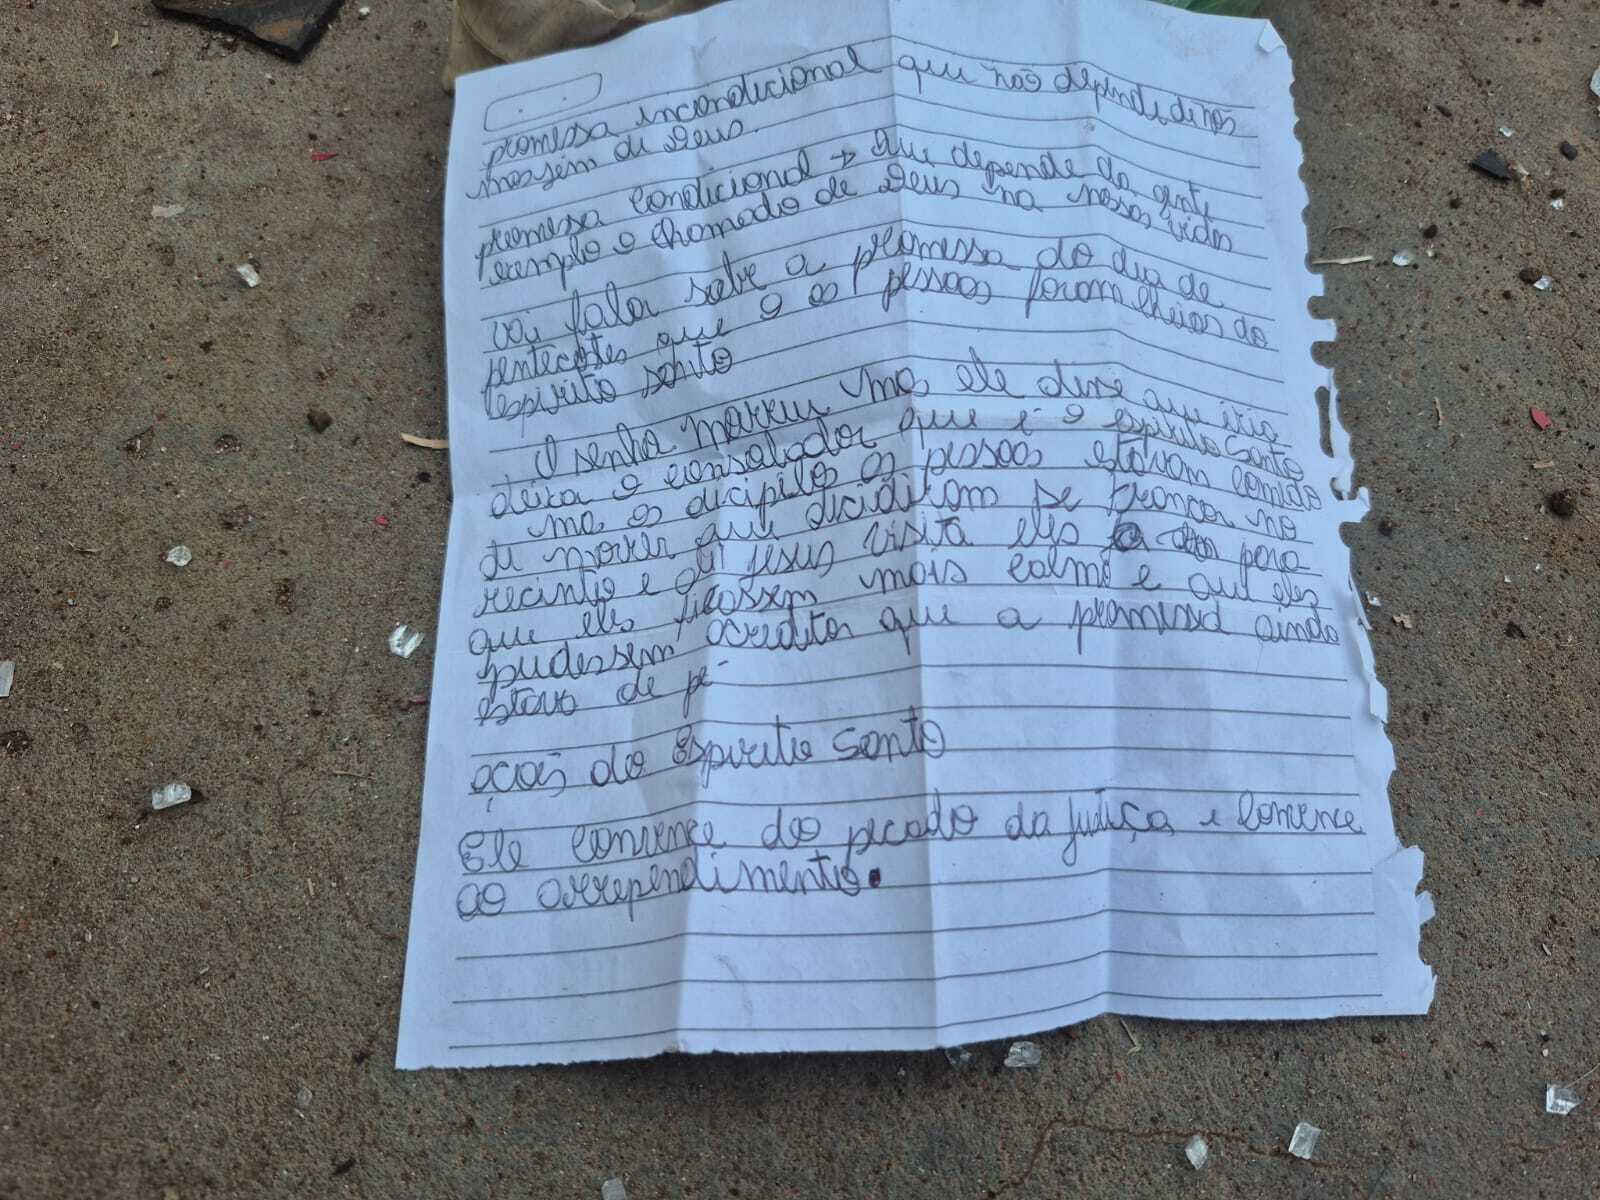 promessa incondicional que não depende de nós
mas sim de Deus.
promessa condicional → Que depende da gente
exemplo o chamado de Deus na nossas vidas
vai falar sobre a promessa do dia de
pentecostes que o as pessoas foram cheias do
espirito santo
O senho morreu mas ele disse que iria
deixa o consolador que é o espirito Santo
mas os dicipilos as pessoas estavam com medo
de morrer que decidiram se trancar no
recinto e ali Jesus visita eles para
que eles ficassem mais calmo e que eles
pudessem acreditar que a promessa ainda
estava de pé
ações do Espirito Santo
Ele convence do pecado da justiça e convence
ao arrependimento.